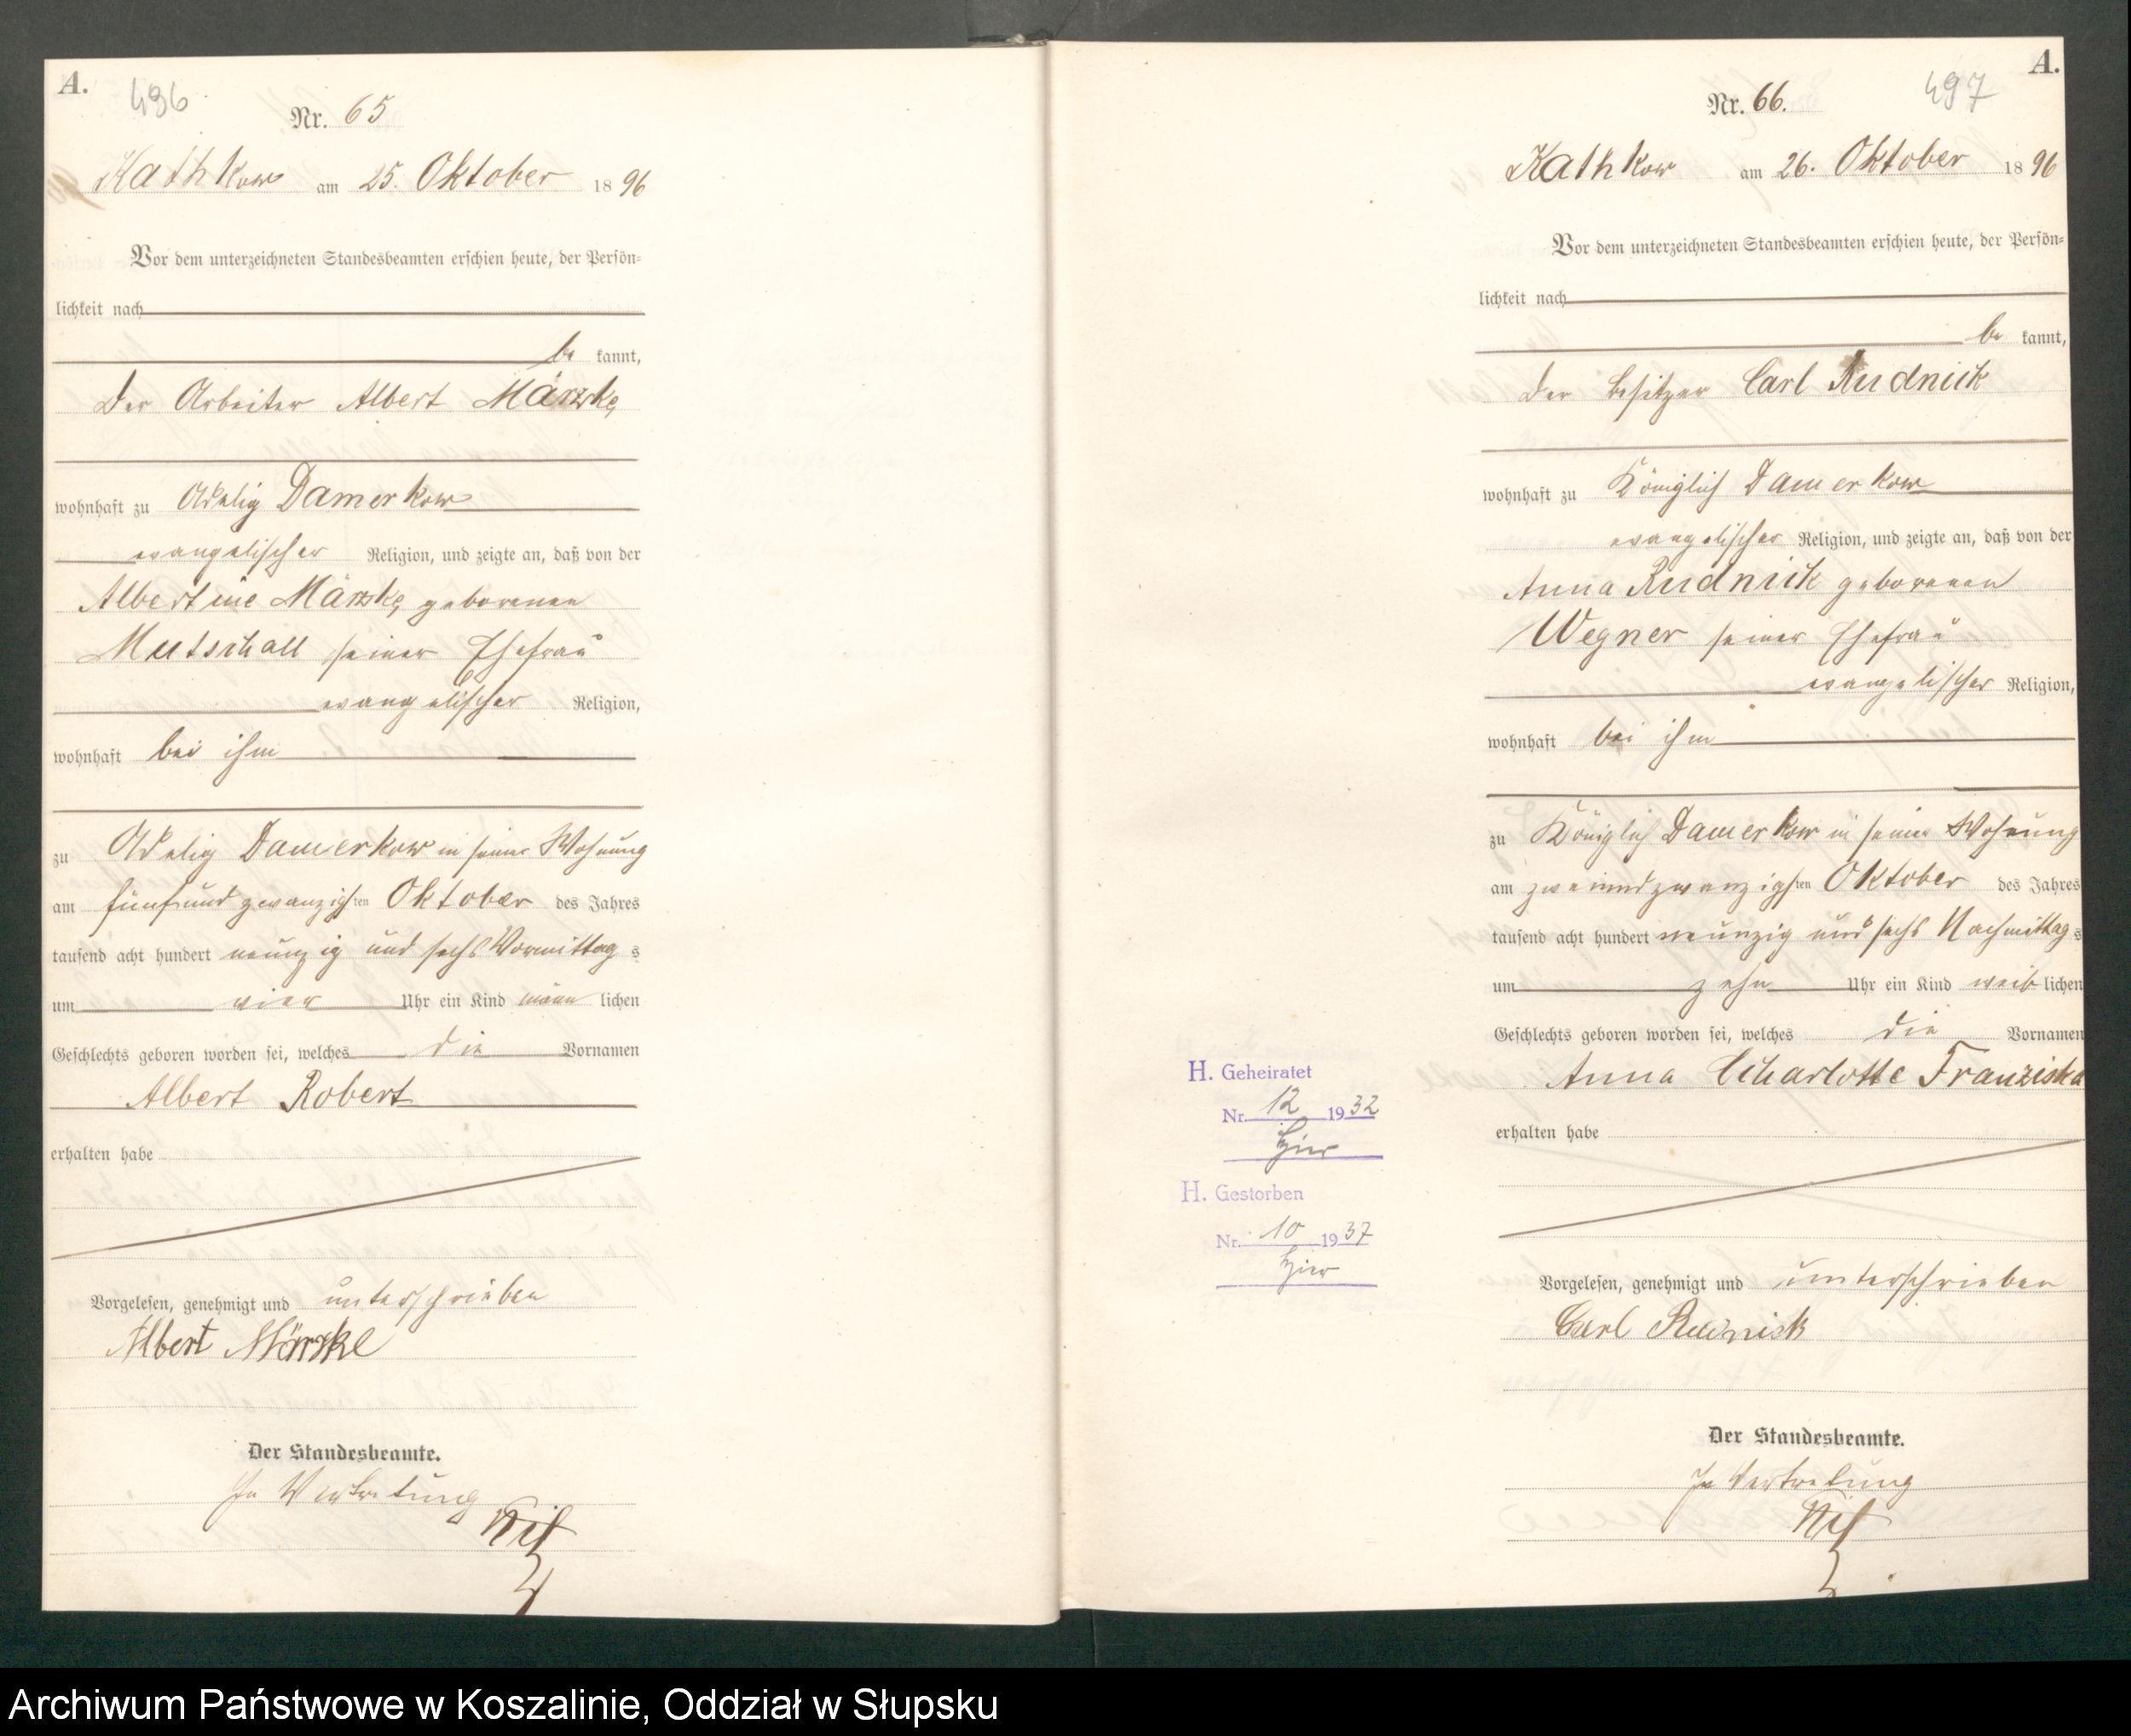 A.
496
Nr. 65
Kathkow am 25. Oktober 1896
Vor dem unterzeichneten Standesbeamten erschien heute, der Persön-
lichkeit nach
be kannt,
der Arbeiter Albert Märzke
wohnhaft zu Adelig Damerkow
evangelischer Religion, und zeigte an, daß von der
Albertine Märzke geborenen
Mutschall seiner Ehefrau
evangelischer Religion,
wohnhaft bei ihm
zu Adelig Damerkow in seiner Wohnung
am fünfundzwanzigsten Oktober des Jahres
tausend acht hundert neunzig und sechs Vormittags
um vier Uhr ein Kind männlichen
Geschlechts geboren worden sei, welches die Vornamen
Albert Robert
erhalten habe
Vorgelesen, genehmigt und unterschrieben
Albert Märzke
Der Standesbeamte.
In Vertretung
A.
497
Nr. 66.
Kathkow am 26. Oktober 1896
Vor dem unterzeichneten Standesbeamten erschien heute, der Persön-
lichkeit nach
be kannt,
der Besitzer Carl Rudnick
wohnhaft zu Königlich Damerkow
evangelischer Religion, und zeigte an, daß von der
Anna Rudnick geborenen
Wegner seiner Ehefrau
evangelischer Religion,
wohnhaft bei ihm
zu Königlich Damerkow in seiner Wohnung
am zweiundzwanzigsten Oktober des Jahres
tausend acht hundert neunzig und sechs Nachmittags
um zehn Uhr ein Kind weiblichen
Geschlechts geboren worden sei, welches die Vornamen
Anna Charlotte Franziska
erhalten habe
Vorgelesen, genehmigt und unterschrieben
Carl Rudnick
Der Standesbeamte.
In Vertretung
H. Geheiratet
Nr. 12 1932
hier
H. Gestorben
Nr. 10 1937
hier
Archiwum Państwowe w Koszalinie, Oddział w Słupsku